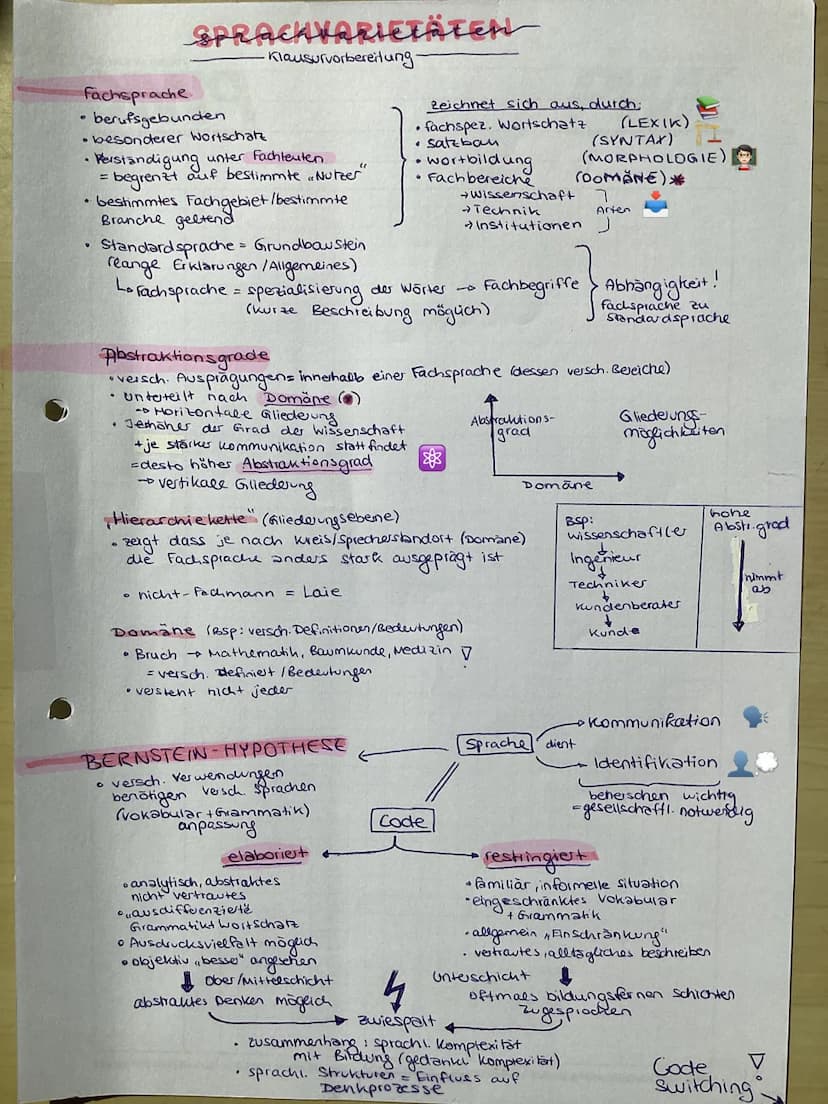 SPRACHVARIETÄTEN
sprachvarietäten
Klausurvorbereitung
Fachsprache
• berufsgebunden
• besonderer Wortschatz
• Verständigung unter Fachleuten
= begrenzt auf bestimmte „Nutzer"
• bestimmtes Fachgebiet/bestimmte
Branche geltend
zeichnet sich aus, durch:
• fachspez. Wortschatz (LEXIK)
• Satzbau (SYNTAX)
• Wortbildung (MORPHOLOGIE)
• Fachbereiche (DOMÄNE)*
→ Wissenschaft
→ Technik
→ Institutionen
Arten
• Standardsprache = Grundbaustein
(lange Erklärungen/Allgemeines)
↳ Fachsprache = spezialisierung der Wörter → Fachbegriffe
(kurze Beschreibung möglich)
Abhängigkeit!
Fachsprache zu
Standardsprache
Abstraktionsgrade
• versch. Ausprägungen = innerhalb einer Fachsprache (dessen versch. Bereiche)
• unterteilt nach Domäne (*)
→ Horizontale Gliederung
• Jehöher der Grad der Wissenschaft
+ je stärker Kommunikation stattfindet
= desto höher Abstraktionsgrad
→ vertikale Gliederung
Abstraktions-
grad
Domäne
Gliederungs-
möglichkeiten
„Hierarchiekette" (Gliederungsebene)
• zeigt dass je nach Kreis/Sprecherstandort (Domäne)
die Fachsprache anders stark ausgeprägt ist
• nicht-Fachmann = Laie
BSP:
Wissenschaftler
↓
Ingenieur
↓
Techniker
↓
Kundenberater
↓
Kunde
hohe
Abstr.grad
nimmt
ab
Domäne (BSP: versch. Definitionen/Bedeutungen)
• Bruch → Mathematik, Baumkunde, Medizin !
= versch. Definiert/Bedeutungen
• versteht nicht jeder
BERNSTEIN-HYPOTHESE
• versch. Verwendungen
benötigen versch. Sprachen
(Vokabular + Grammatik)
anpassung
Sprache
dient
Kommunikation
Identifikation
beherschen wichtig
= gesellschaftl. notwendig
Code
elaboriert
• analytisch, abstraktes
nicht vertrautes
• „ausdifferenzierte
Grammatik + Wortschatz
• Ausdrucksvielfalt möglich
• objektiv „besser" angesehen
Ober/Mittelschicht
abstraktes Denken möglich
restringiert
• familiär, informelle Situation
• eingeschränktes Vokabular
+ Grammatik
• allgemein „Einschränkung"
• vertrautes, alltägliches beschreiben
Unterschicht
oftmals bildungsfernen Schichten
zugesprochen
Zwiespalt
• Zusammenhang: sprachl. Komplexität
mit Bildung (gedankl. Komplexität)
• sprachl. Strukturen = Einfluss auf
Denkprozesse
Code
switching !